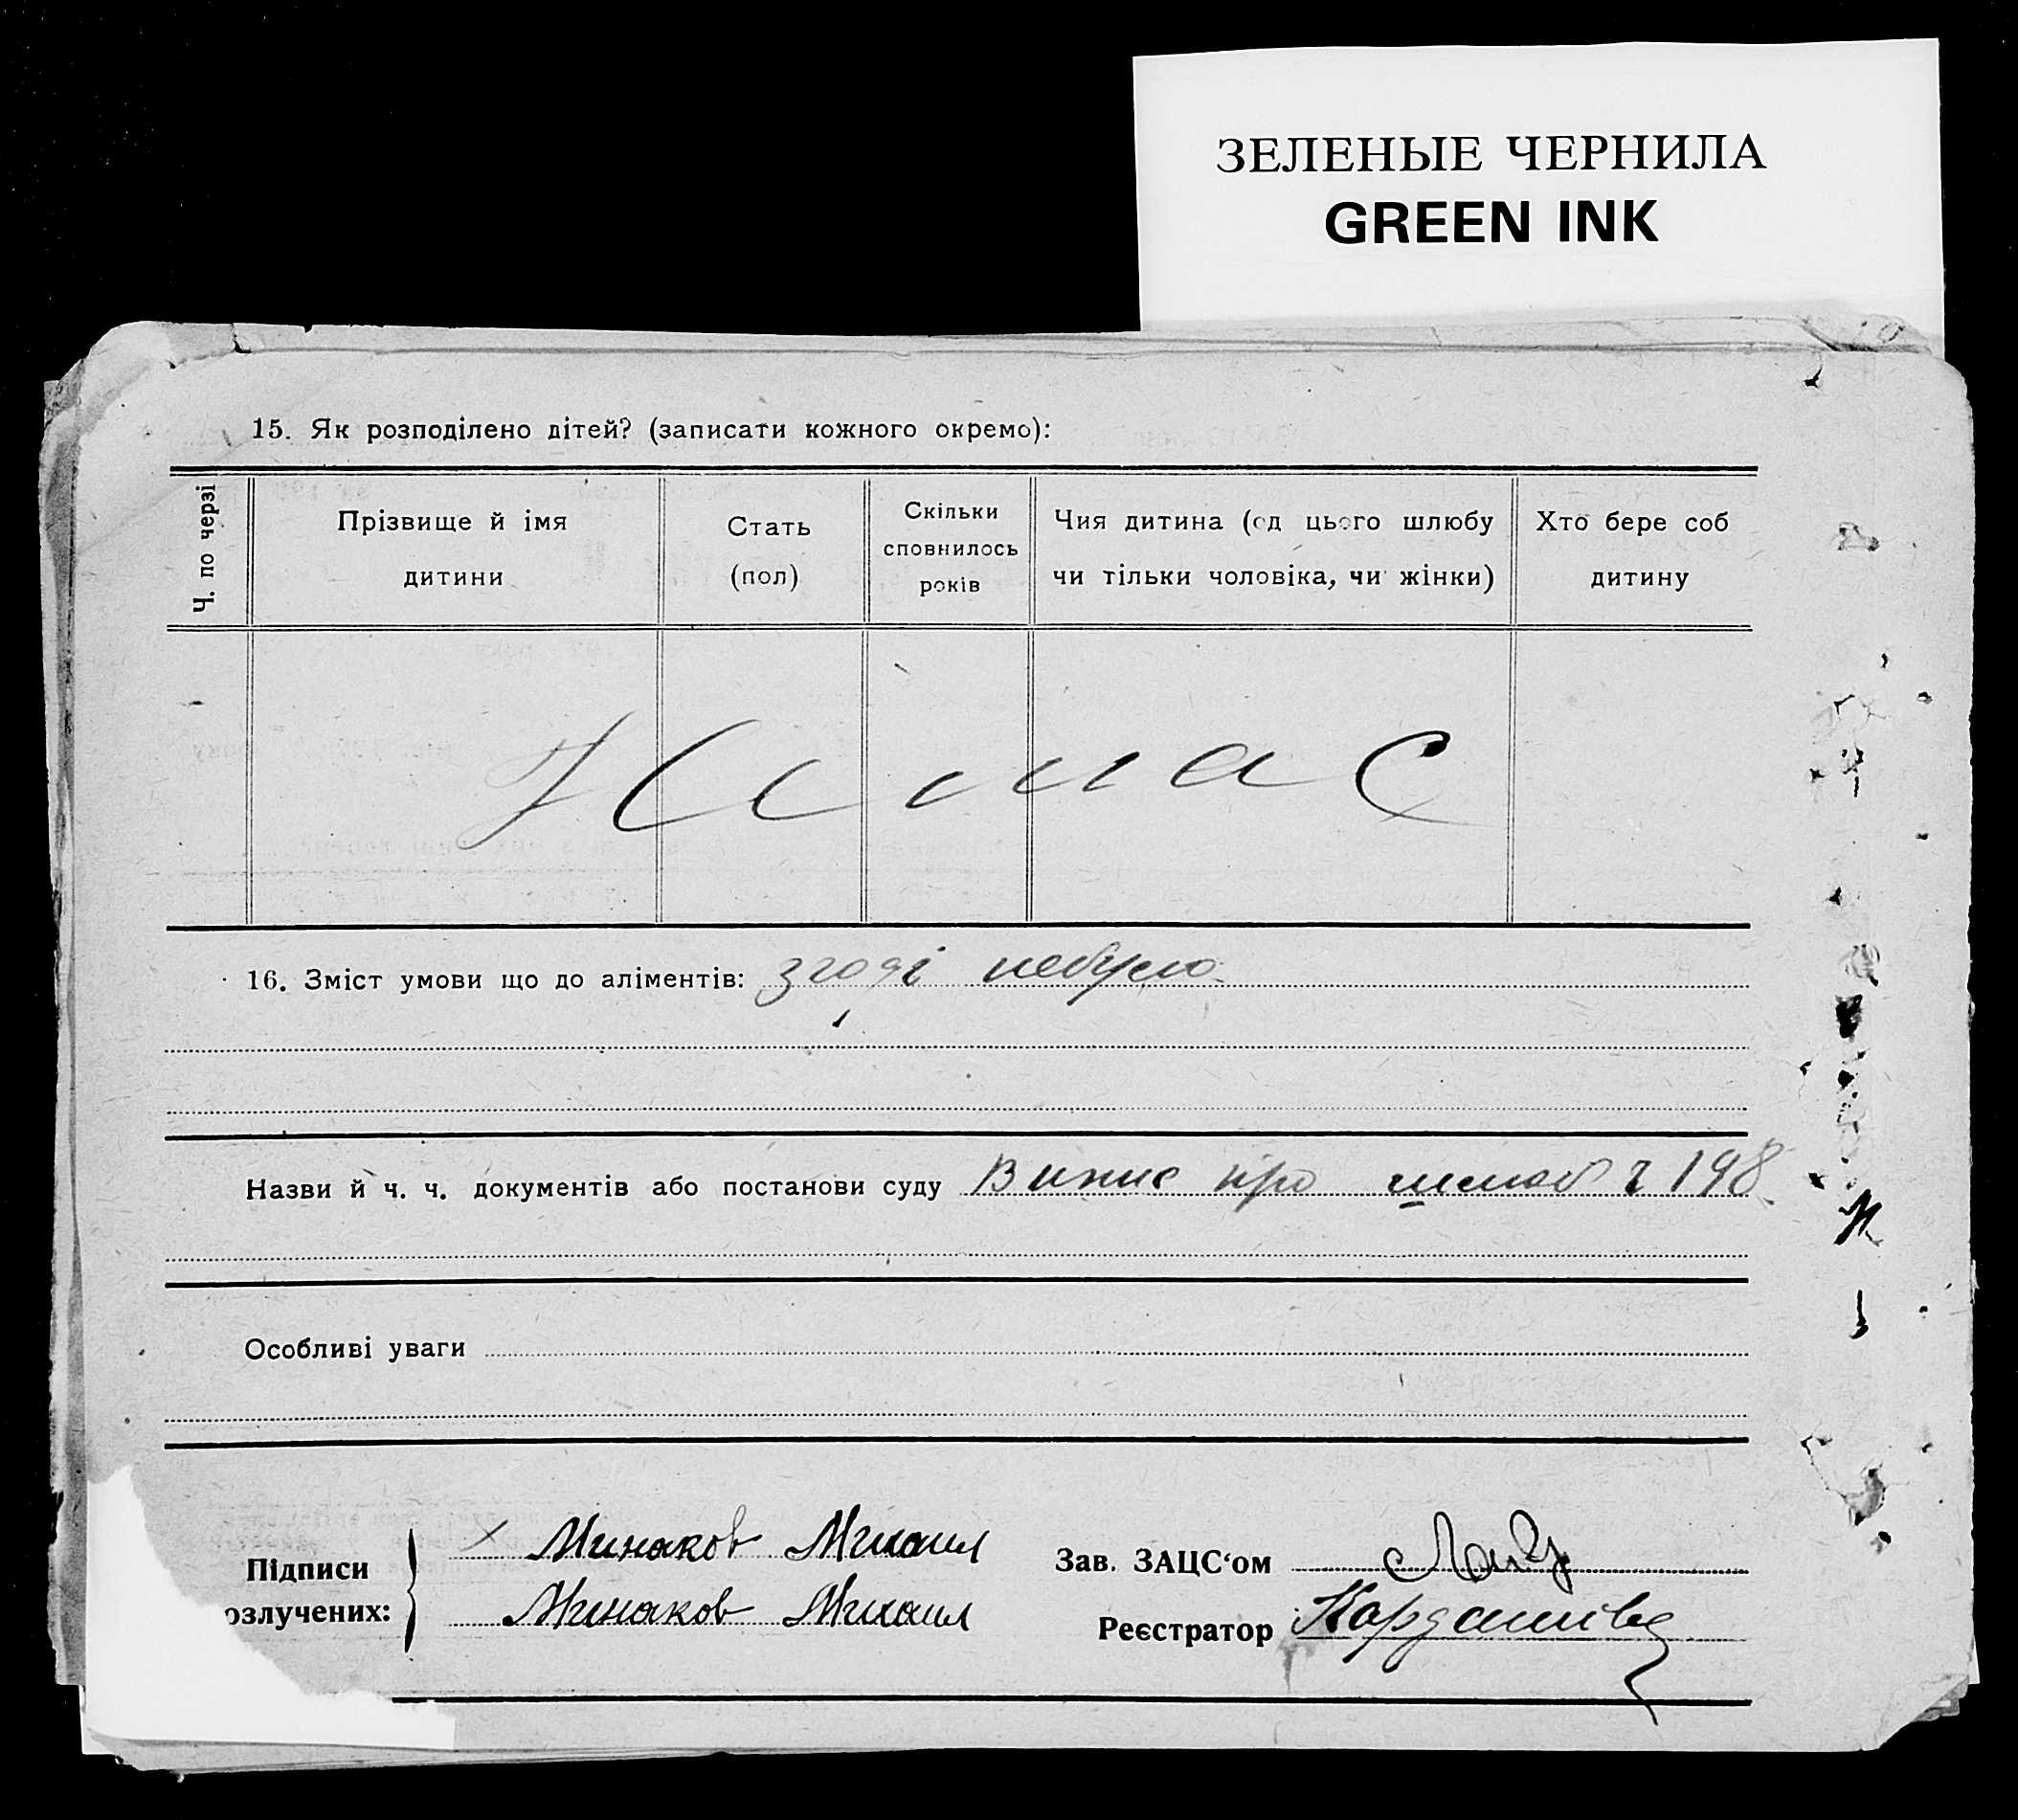 ЗЕЛЕНЫЕ ЧЕРНИЛА
GREEN INK
15. Як розподілено дітей? (записати кожного окремо):
Ч. по черзі
Прізвище й імя
дитини
Стать
(пол)
Скільки
сповнилось
років
Чия дитина (од цього шлюбу
чи тільки чоловіка, чи жінки)
Хто бере соб
дитину
Нимає
16. Зміст умови що до аліментів: згоді небуло
Назви й ч. ч. документів або постанови суду Випис про шлюб ч 198
Особливі уваги
Підписи
озлучених:
Минаков Михаил
Минаков Михаил
Зав. ЗАЦС‘ом
Реєстратор